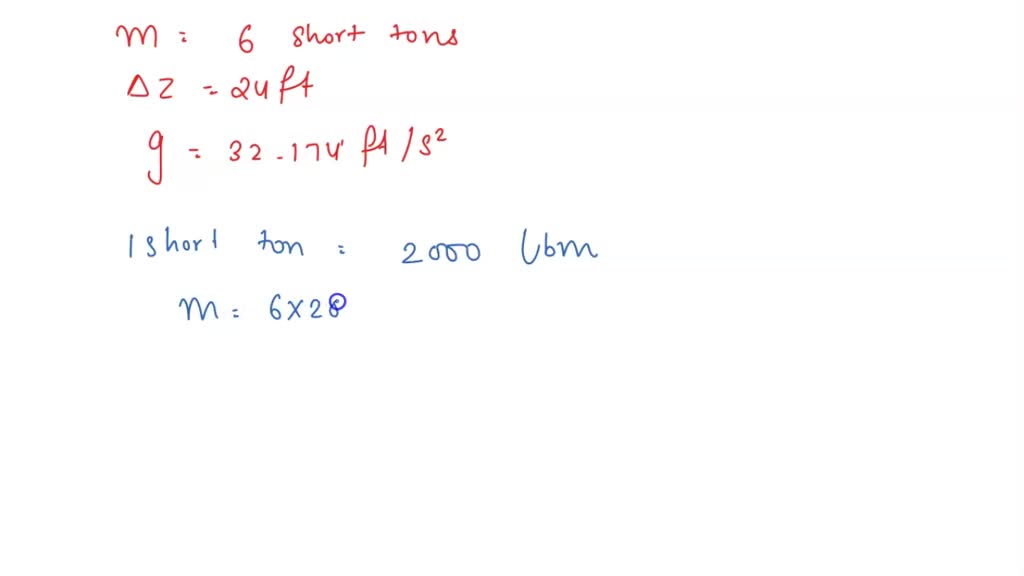 m = 6 short tons
ΔZ = 24 ft
g = 32.174 ft/s²
1 short ton = 2000 lbm
m = 6×20